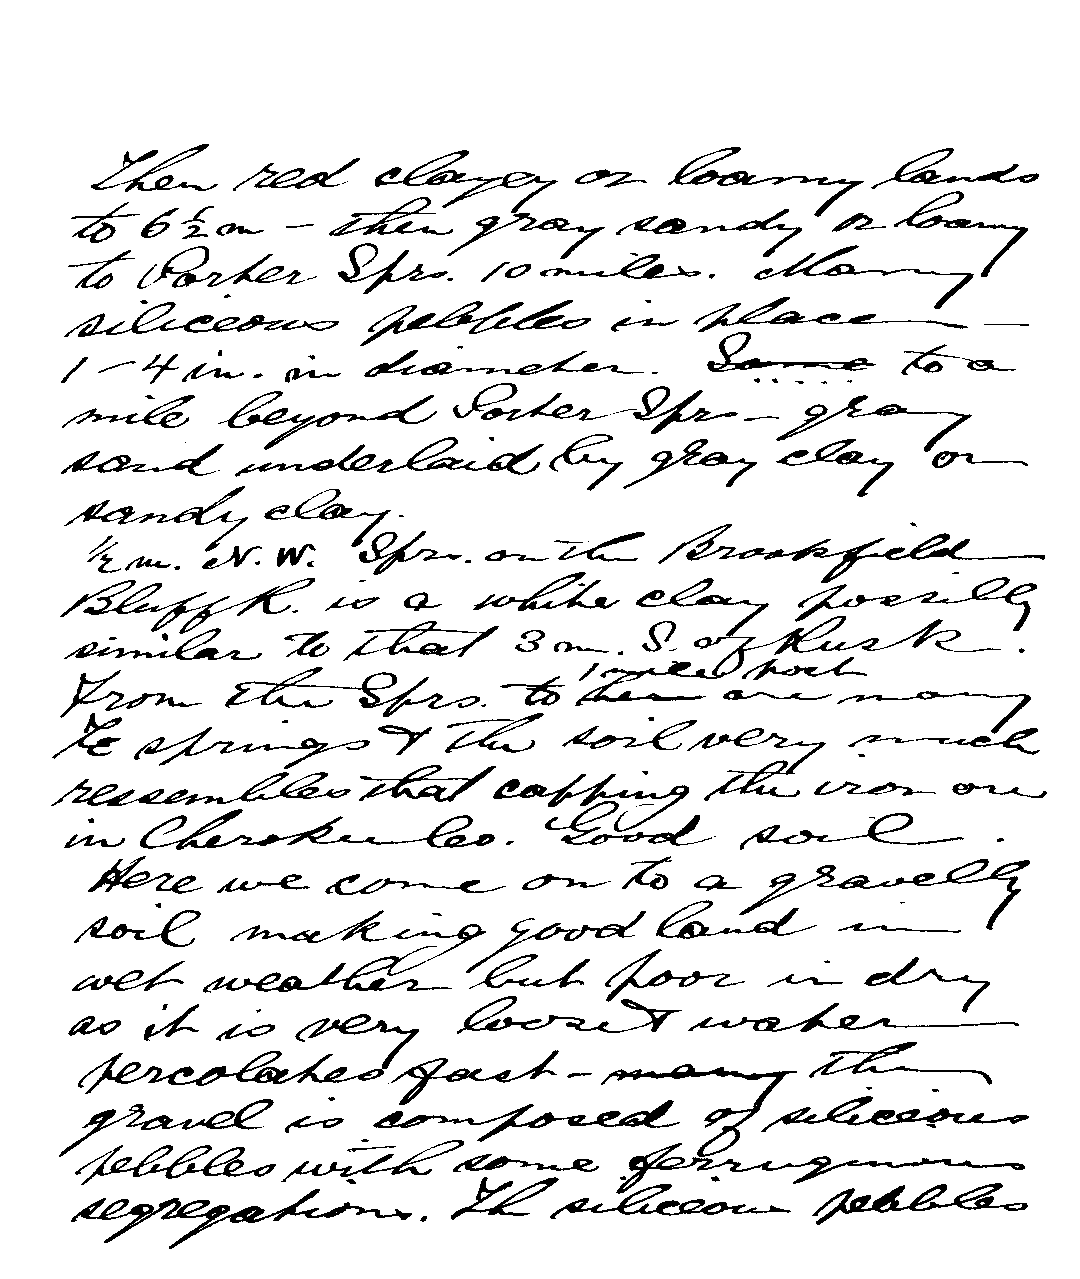 Then red clayey or loamy lands
to 6½ m – then gray sandy or loamy
to Porter Sprs. 10 miles. Many
siliceous pebbles in place –
1–4 in. in diameter. Same to a
mile beyond Porter Sprs – gray
sand underlaid by gray clay or
sandy clay.
½ m. N.W. Sprs. on the Brookfield
Bluff R. is a white clay possibly
similar to that 3 m. S. of Rusk.
1 mile post
From the Sprs. to here are many
Fe springs & the soil very much
ressembles that capping the iron ore
in Cherokee Co. Good soil.
Here we come on to a gravelly
soil making good land in
wet weather but poor in dry
as it is very loose & water
percolates fast – many the
gravel is composed of siliceous
pebbles with some ferruginous
segregations. The siliceous pebbles